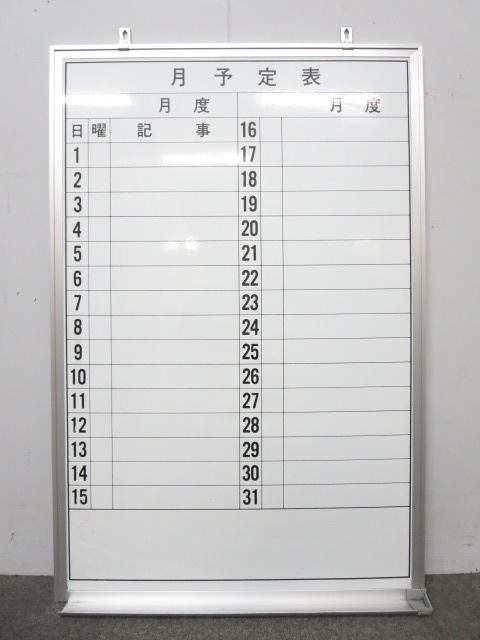 月予定表
月度 月度
日 曜 記事 16
1 17
2 18
3 19
4 20
5 21
6 22
7 23
8 24
9 25
10 26
11 27
12 28
13 29
14 30
15 31